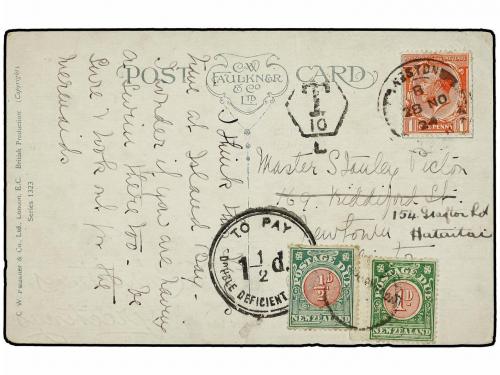 POST CARD
C.W. FAULKNER & Co. LTD.
I think
time at Island Bay.
I wonder if you are having
a swim there too. Be
sure & look out for the
mermaids
C. W. Faulkner & Co. Ltd., London, E.C. British Production (Copyright)
Series 1323
T
10
L
KESTON
28 NO
ONE PENNY
Master Stanley Picton
169
St
Newtown
154 Grafton Rd
Hataitai
TO PAY
1 1/2 d.
DOUBLE DEFICIENT
POSTAGE DUE
½d
NEW ZEALAND
POSTAGE DUE
1d
NEW ZEALAND